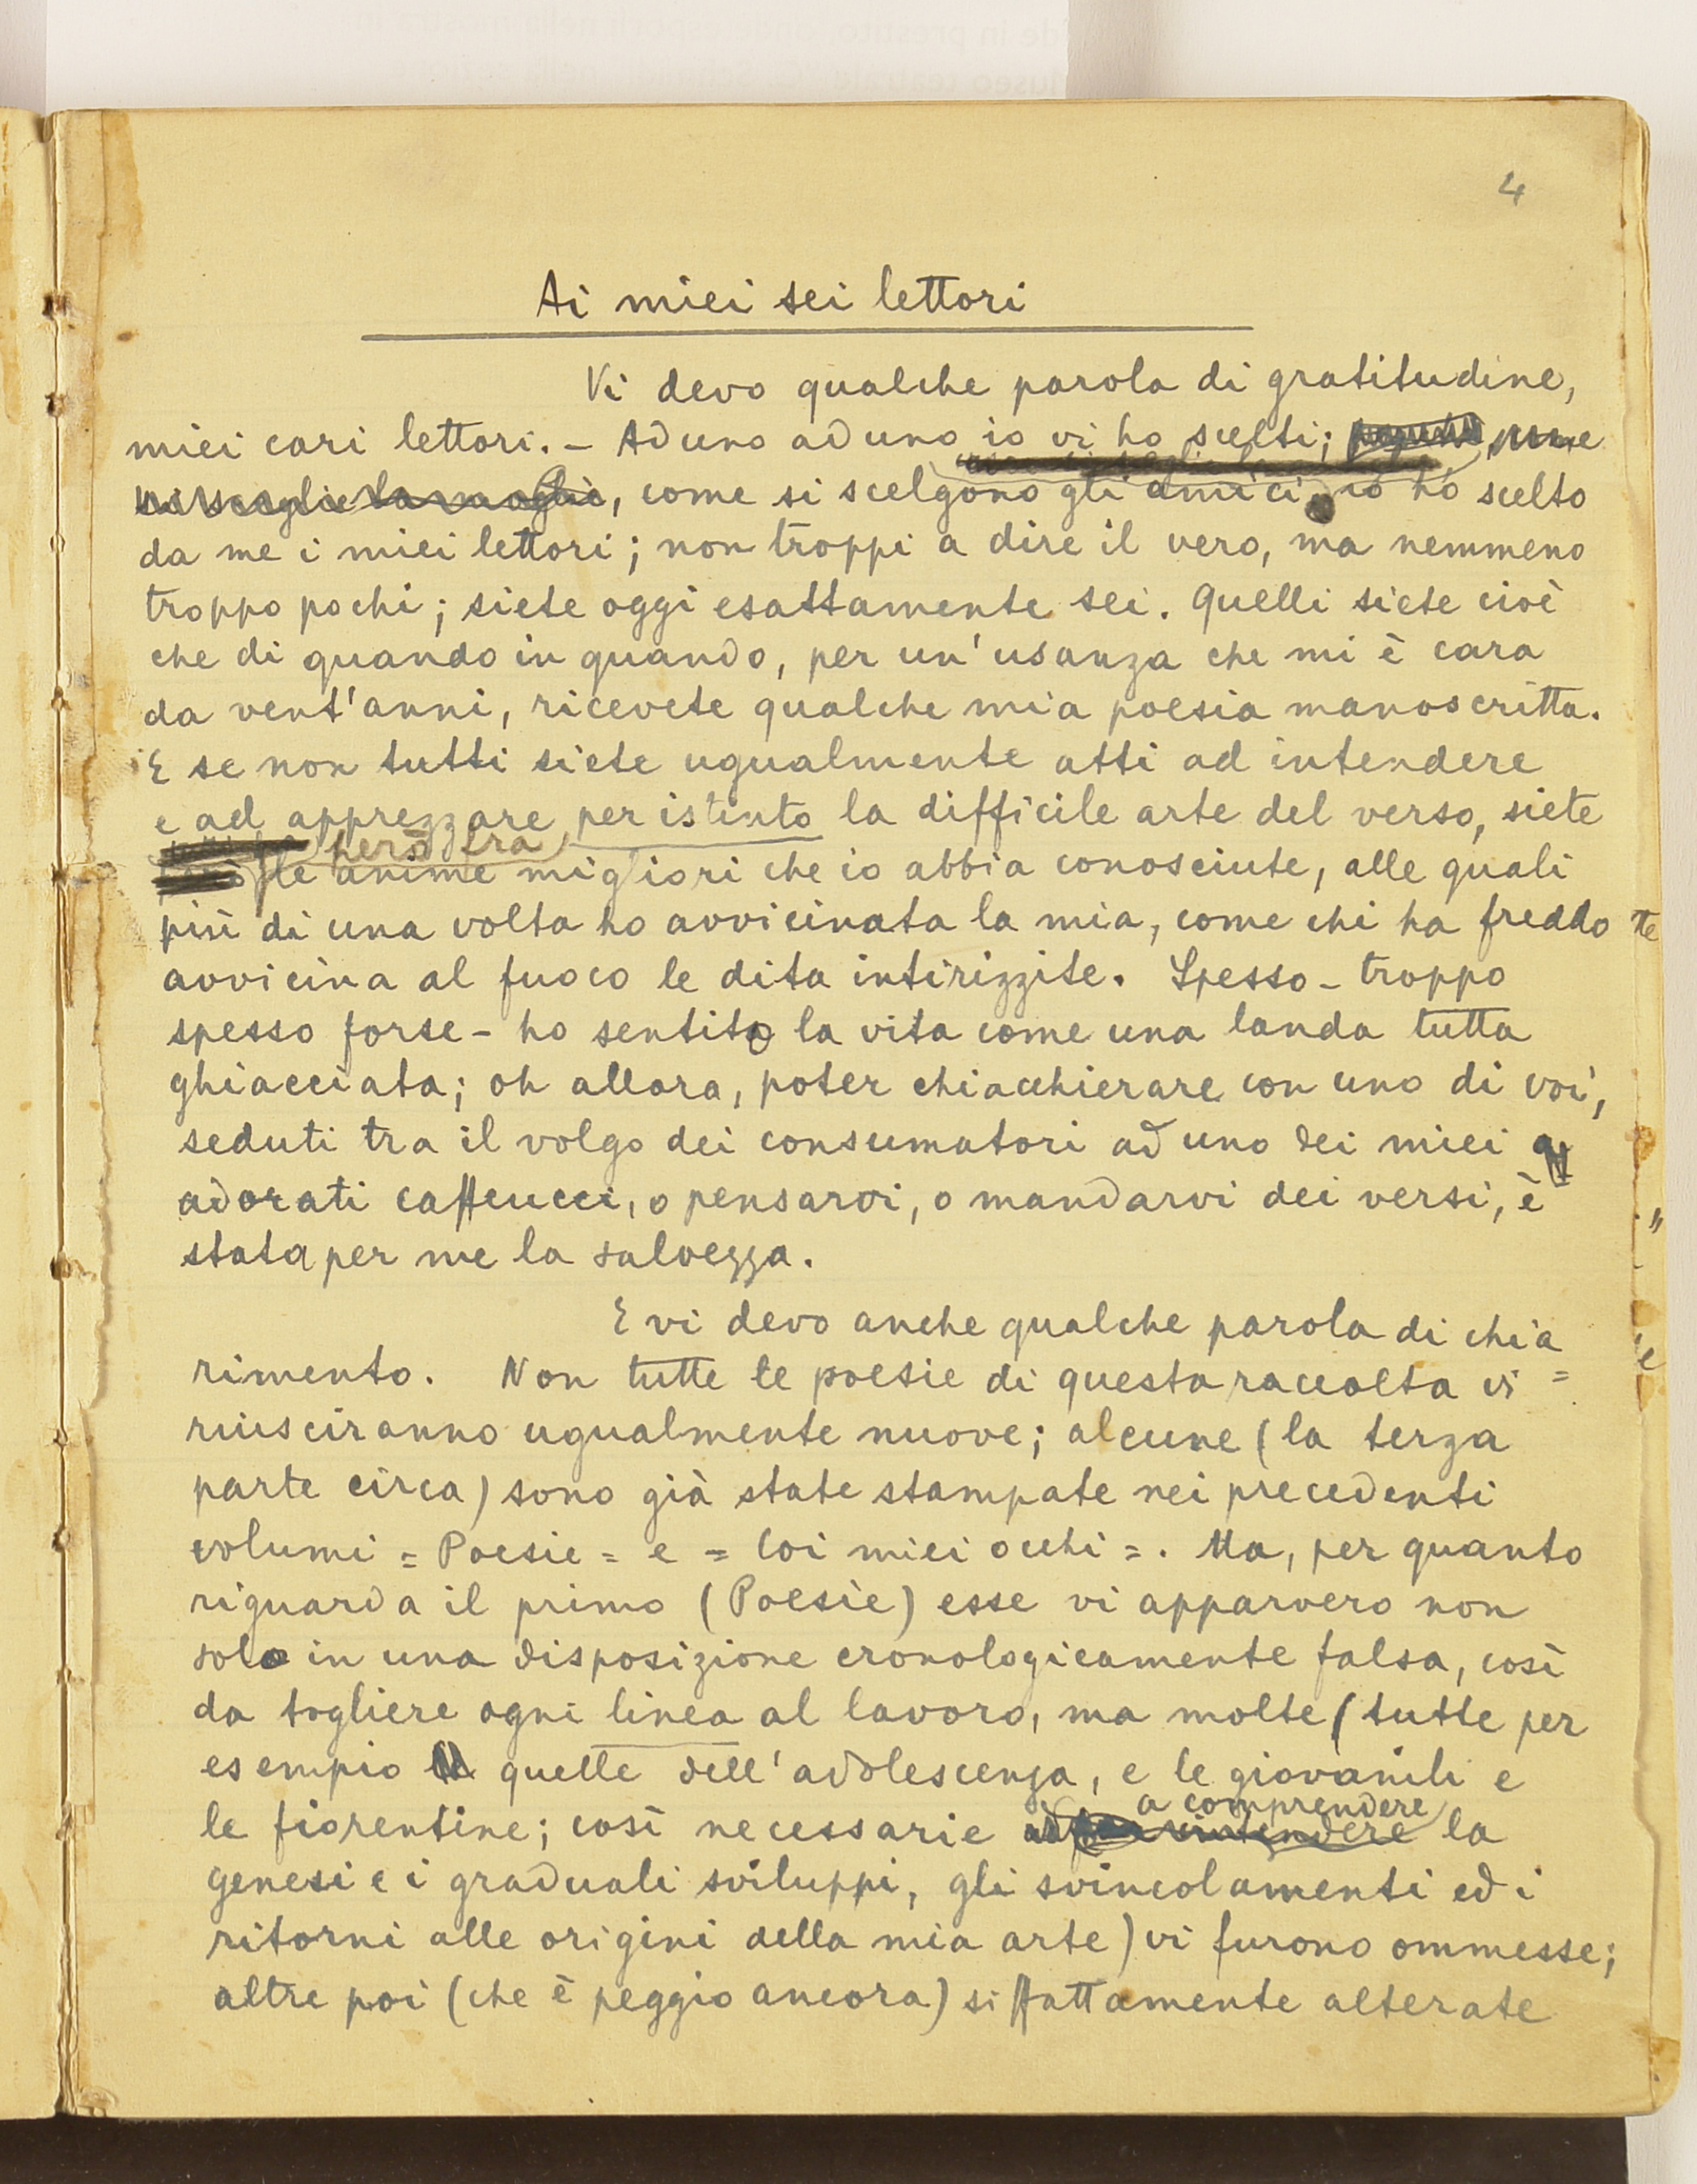 4
Ai miei sei lettori
Vi devo qualche parola di gratitudine,
miei cari lettori. – Ad uno ad uno io vi ho scelti; come
si sceglie la moglie, come si scelgono gli amici, io ho scelto
da me i miei lettori; non troppi a dire il vero, ma nemmeno
troppo pochi; siete oggi esattamente sei. Quelli siete cioè
che di quando in quando, per un'usanza che mi è cara
da vent'anni, ricevete qualche mia poesia manoscritta.
E se non tutti siete ugualmente atti ad intendere
e ad apprezzare per istinto la difficile arte del verso, siete
però tra
le anime migliori che io abbia conosciute, alle quali
più di una volta ho avvicinata la mia, come chi ha freddo
avvicina al fuoco le dita intirizzite. Spesso – troppo
spesso forse – ho sentito la vita come una landa tutta
ghiacciata; oh allora, poter chiacchierare con uno di voi,
seduti tra il volgo dei consumatori ad uno dei miei
adorati caffeucci, o pensarvi, o mandarvi dei versi, è
stata per me la salvezza.
E vi devo anche qualche parola di chia=
rimento. Non tutte le poesie di questa raccolta vi
riusciranno ugualmente nuove; alcune (la terza
parte circa) sono già state stampate nei precedenti
volumi = Poesie = e = Coi miei occhi = . Ma, per quanto
riguarda il primo (Poesie) esse vi apparvero non
solo in una disposizione cronologicamente falsa, così
da togliere ogni linea al lavoro, ma molte (tutte per
esempio quelle dell'adolescenza, e le giovanili e
a comprendere
le fiorentine; così necessarie ad intendere la
genesi e i graduali sviluppi, gli svincolamenti ed i
ritorni alle origini della mia arte) vi furono ommesse;
altre poi (che è peggio ancora) siffattamente alterate